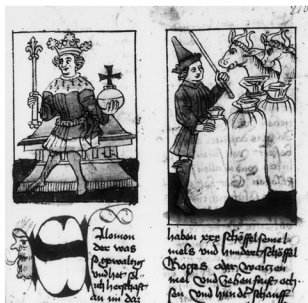 Salomon
der was
so gewaltig
und het sol
ich herschaft
an im das
haben xxx schöffel semel
mels und hundert schöffel
Roges oder waitzen
mel und zehen faist och
sen und hundert schauff